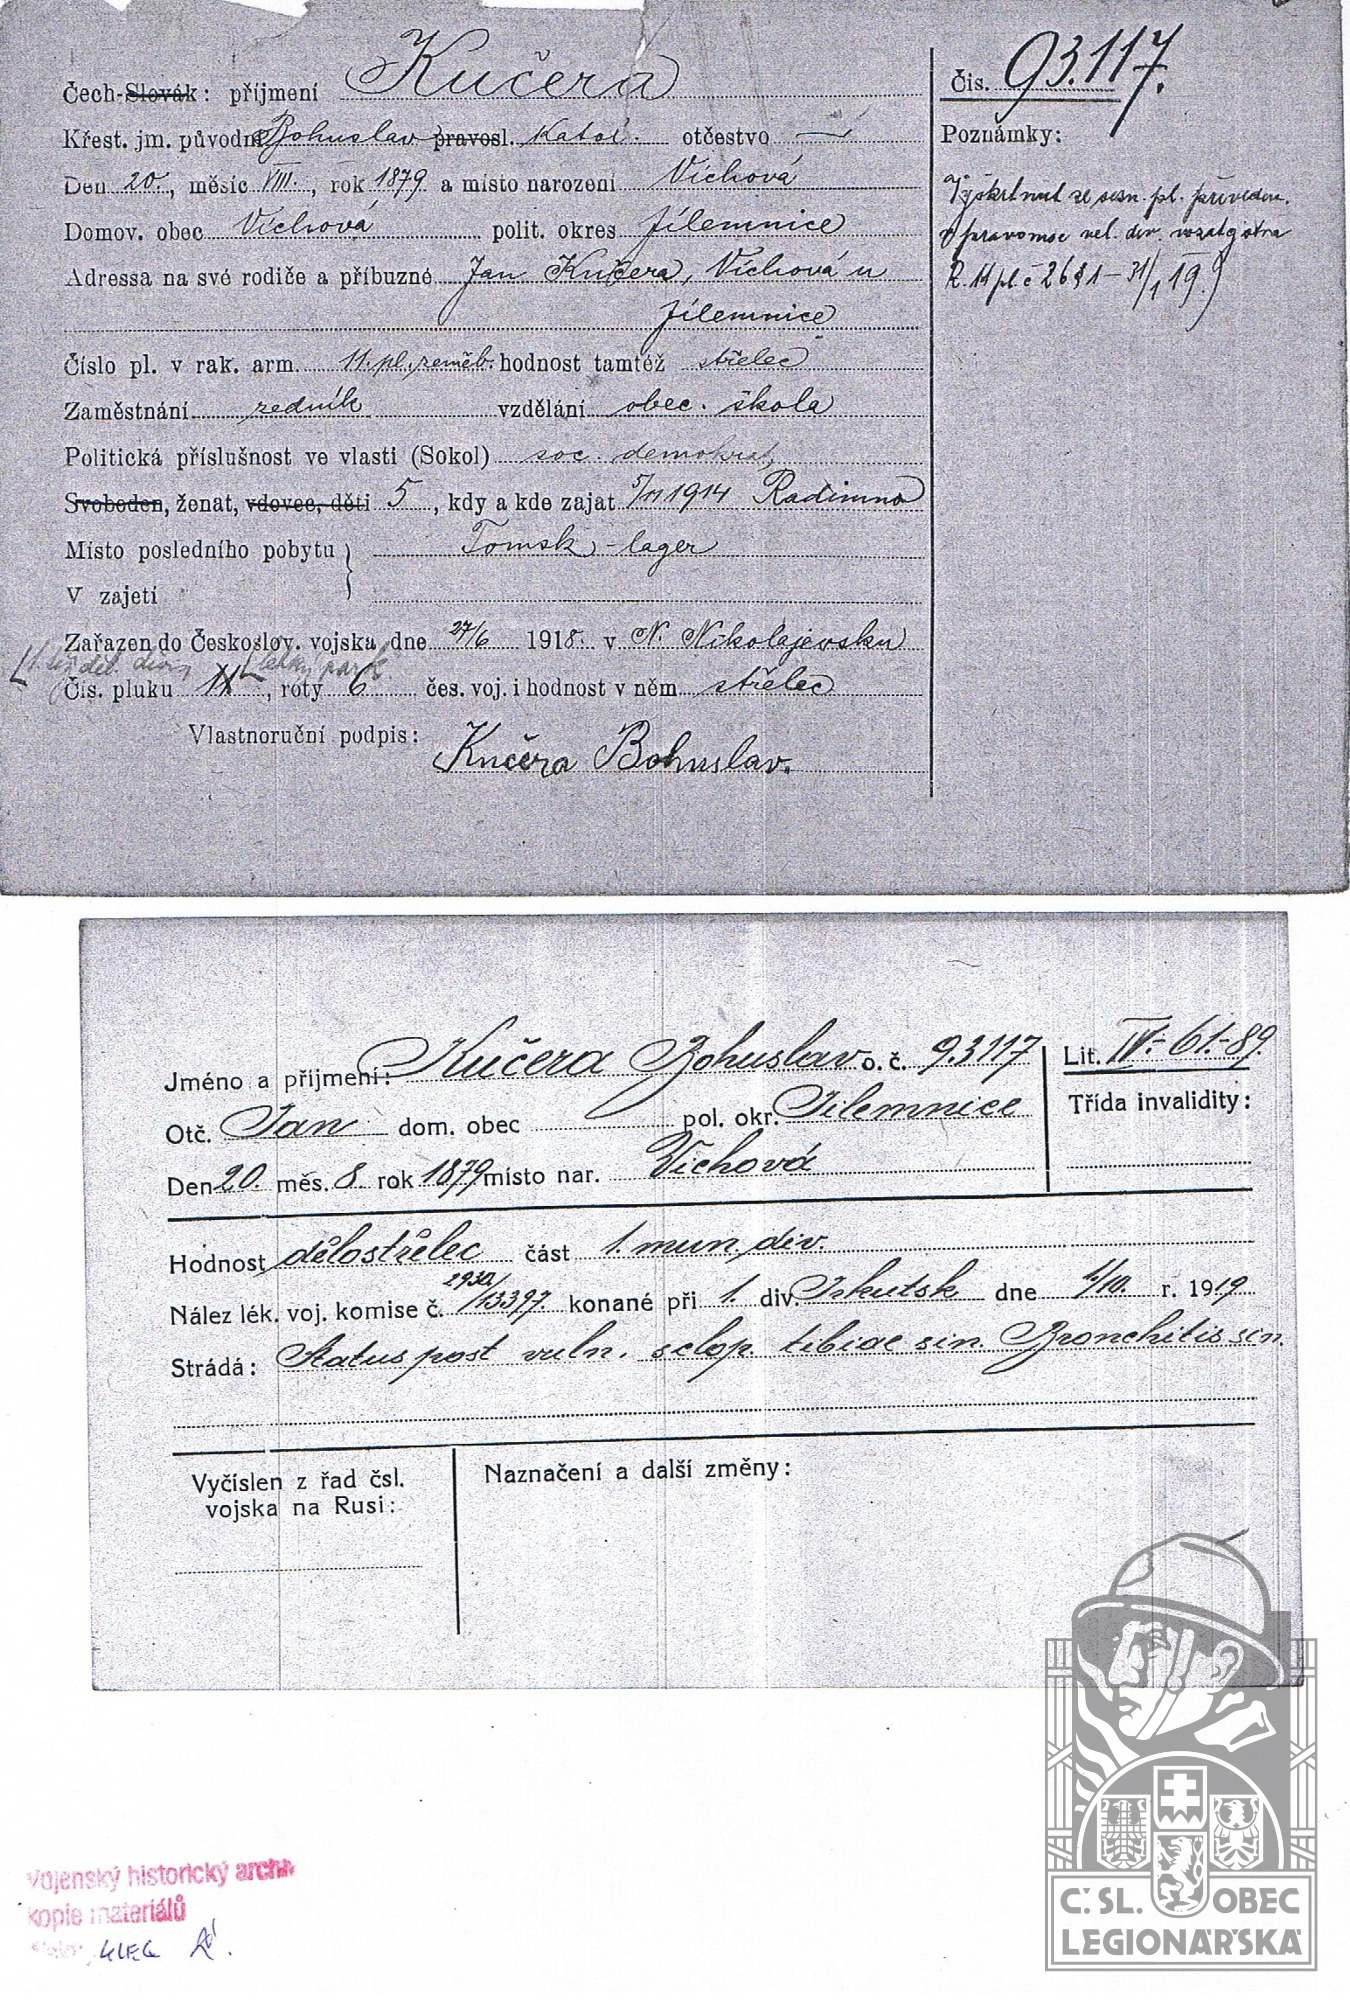 Čech-Slovák: příjmení Kučera
Křest. jm. původně Bohuslav pravosl. katol. otčestvo —
Den 20., měsíc VIII., rok 1879 a místo narození Víchová
Domov. obec Víchová polit. okres Jilemnice
Adressa na své rodiče a příbuzné Jan Kučera, Víchová u
Jilemnice
Číslo pl. v rak. arm. 11. pl. zeměb. hodnost tamtéž střelec
Zaměstnání zedník vzdělání obec. škola
Politická příslušnost ve vlasti (Sokol) soc. demokrat,
Svoboden, ženat, vdovec, děti 5, kdy a kde zajat 5/11 1914 Radimno
Místo posledního pobytu Tomsk-lager
V zajetí
Zařazen do Českoslov. vojska dne 27/6 1918. v N. Nikolajevsku
děl. lehký park
Čís. pluku 11, roty 6 čes. voj. i hodnost v něm střelec
Vlastnoruční podpis: Kučera Bohuslav.
Čis. 93.117.
Poznámky:
Vyškrtnut ze sezn. pl. převeden.
R. 11 pl. č 2631 – 31/1 19.
Jméno a příjmení: Kučera Bohuslav o. č. 93117
Otč. Jan dom. obec pol. okr. Jilemnice
Den 20. měs. 8. rok 1879 místo nar. Víchová
Lit. IV.- 61.-89.
Třída invalidity:
Hodnost dělostřelec část 1. mun. div.
Nález lék. voj. komise č. /13397. konané při 1. div. Irkutsk dne 1/10. r. 1919.
Strádá: Status post vuln. sclop. tibiae sin. Bronchitis sin.
Vyčíslen z řad čsl.
vojska na Rusi:
Naznačení a další změny:
Vojenský historický archiv
kopie materiálů
Č.SL. OBEC
LEGIONÁŘSKÁ